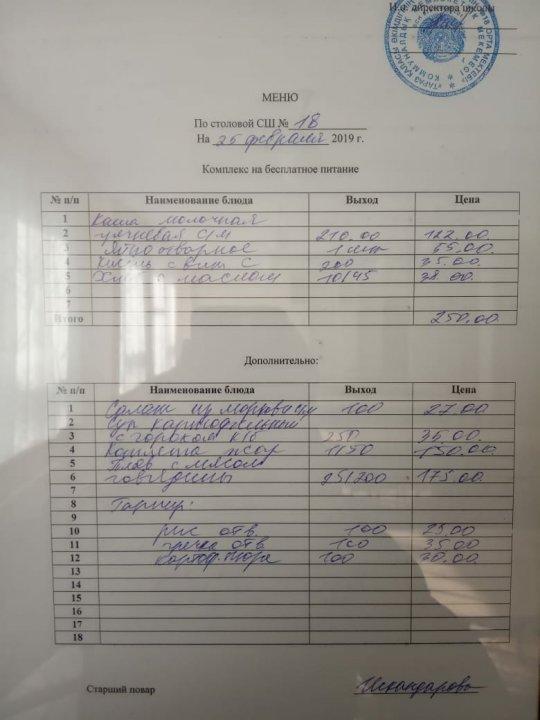 И.о. директора школы
МЕНЮ
По столовой СШ № 18
На 25 февраля 2019 г.
Комплекс на бесплатное питание
№ п/п Наименование блюда Выход Цена
1 Каша молочная
2 ячневая с/м 210.00 122.00
3 Яйцо отварное 1 шт 55.00
4 Кисель с вит С 200 35.00
5 Хлеб с маслом 10/45 38.00
6
7
Итого 250.00
Дополнительно:
№ п/п Наименование блюда Выход Цена
1 Салат из моркови с/м 100 27.00
2 Суп картофельный
3 с горохом к/б 250 35.00
4 Котлета 1/50 150.00
5 Плов с мясом
6 говядины 25/200 175.00
7
8 Гарнир:
9
10 рис отв. 100 25.00
11 гречка отв 100 35.00
12 картоф. пюре 100 30.00
13
14
15
16
17
18
Старший повар Искандарова